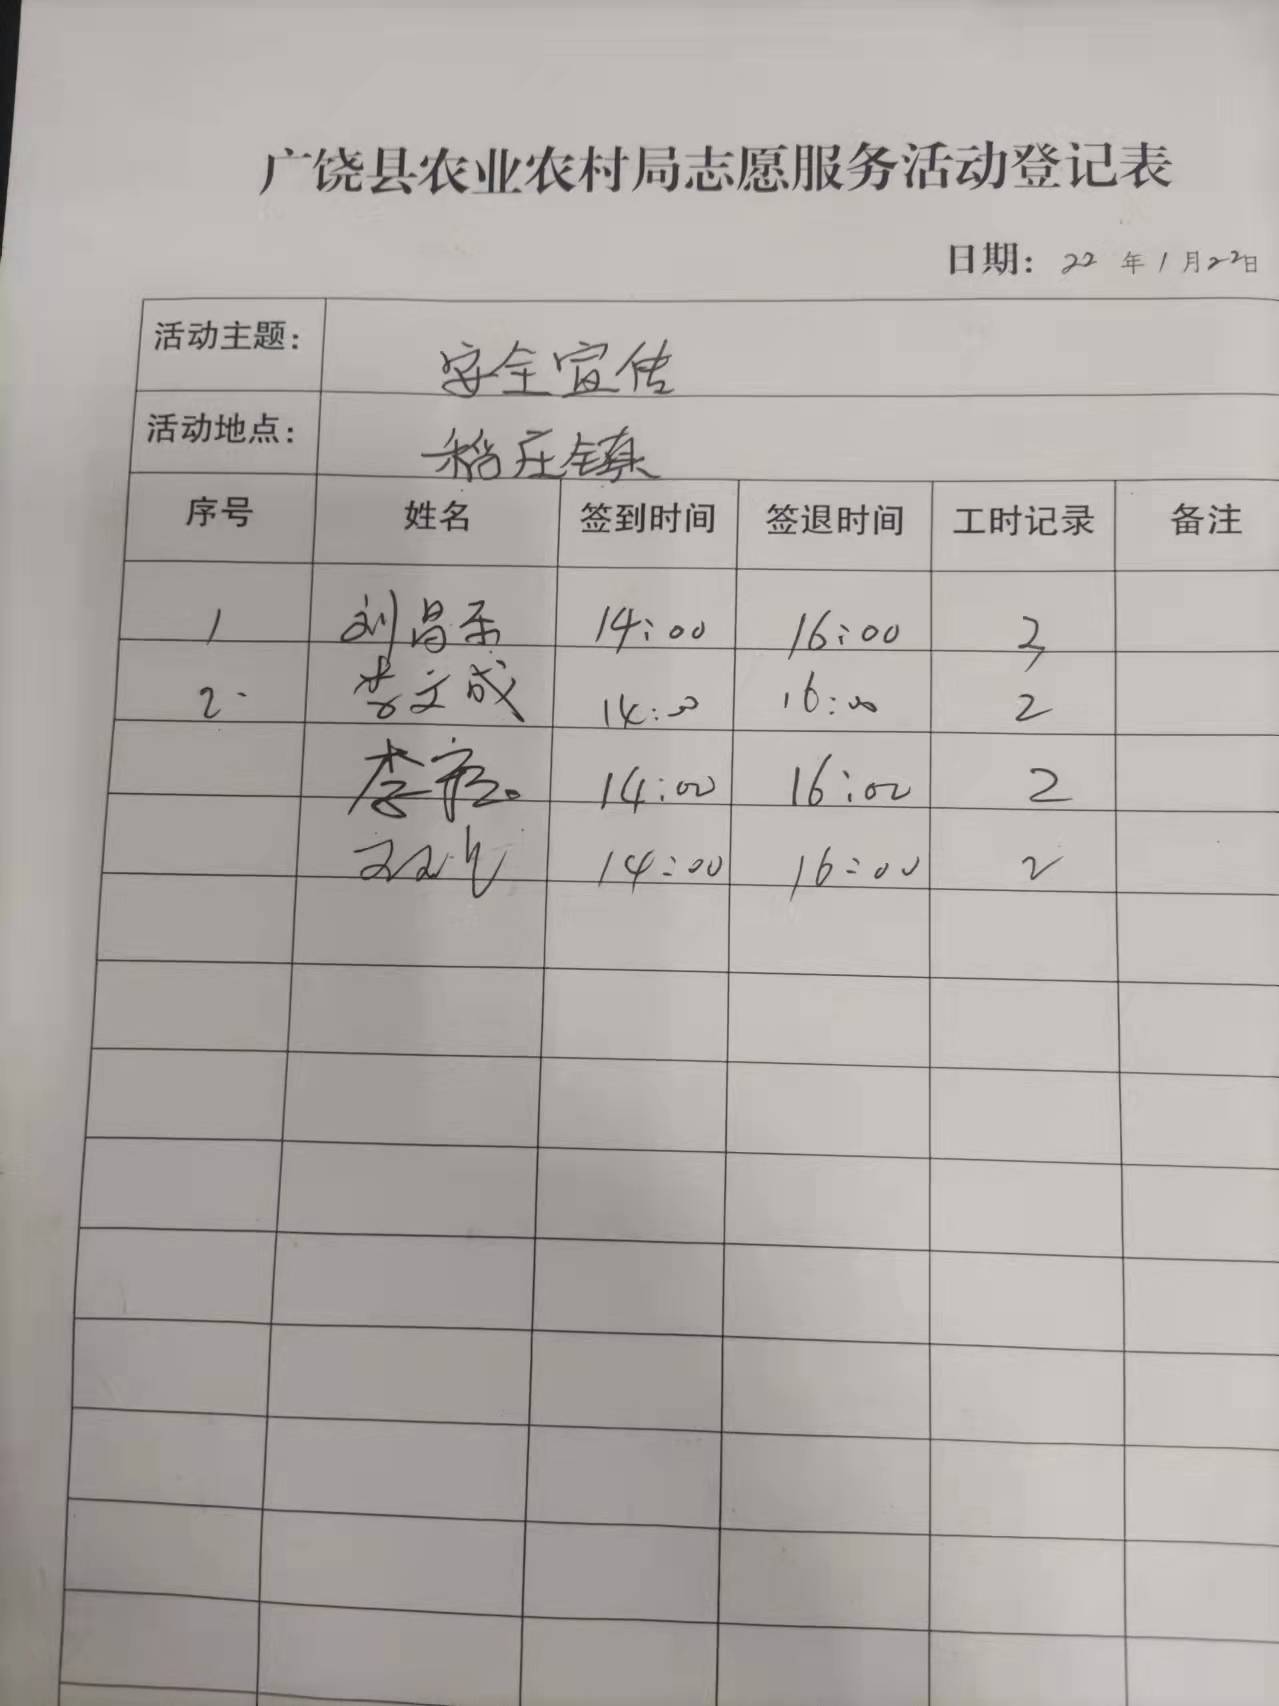 广饶县农业农村局志愿服务活动登记表
日期: 22 年 1 月 22日
活动主题: 安全宣传
活动地点: 稻庄镇
序号 姓名 签到时间 签退时间 工时记录 备注
1 刘昌乐 14:00 16:00 2
2 李文成 14:00 16:00 2
李 14:00 16:00 2
14:00 16:00 2